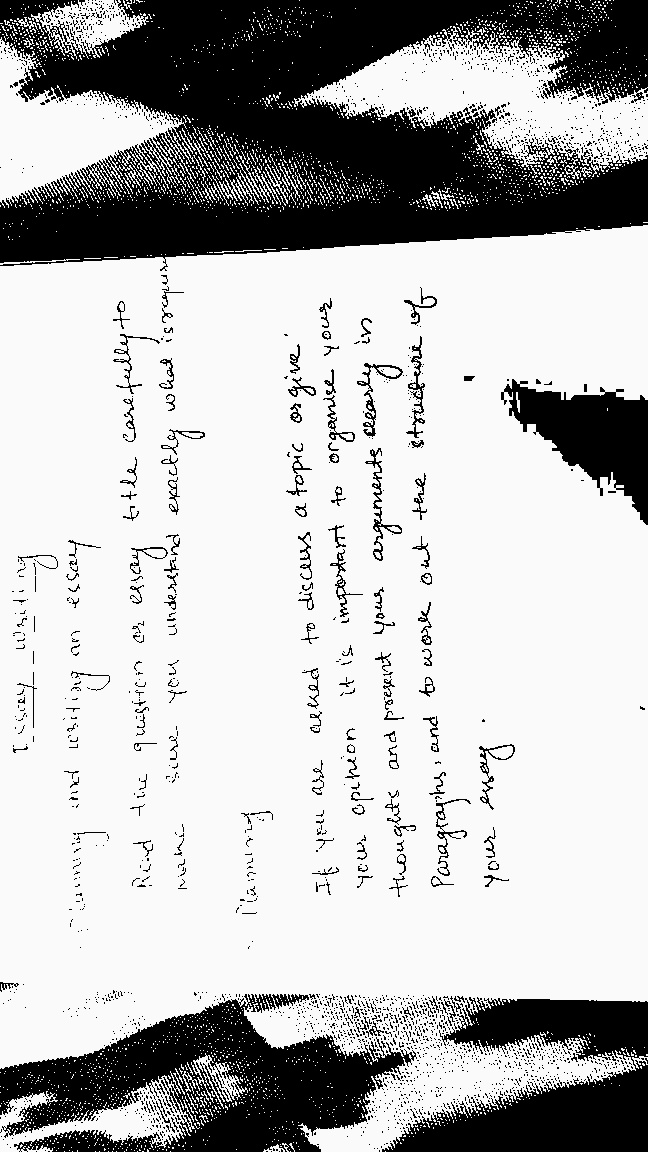 Essay Writing
- Planning and writing an essay
Read the question or essay title carefully to
make sure you understand exactly what is requir
- Planning
If you are asked to discuss a topic or give
your opinion it is important to organise your
thoughts and present your arguments clearly in
Paragraphs, and to work out the structure of
your essay.